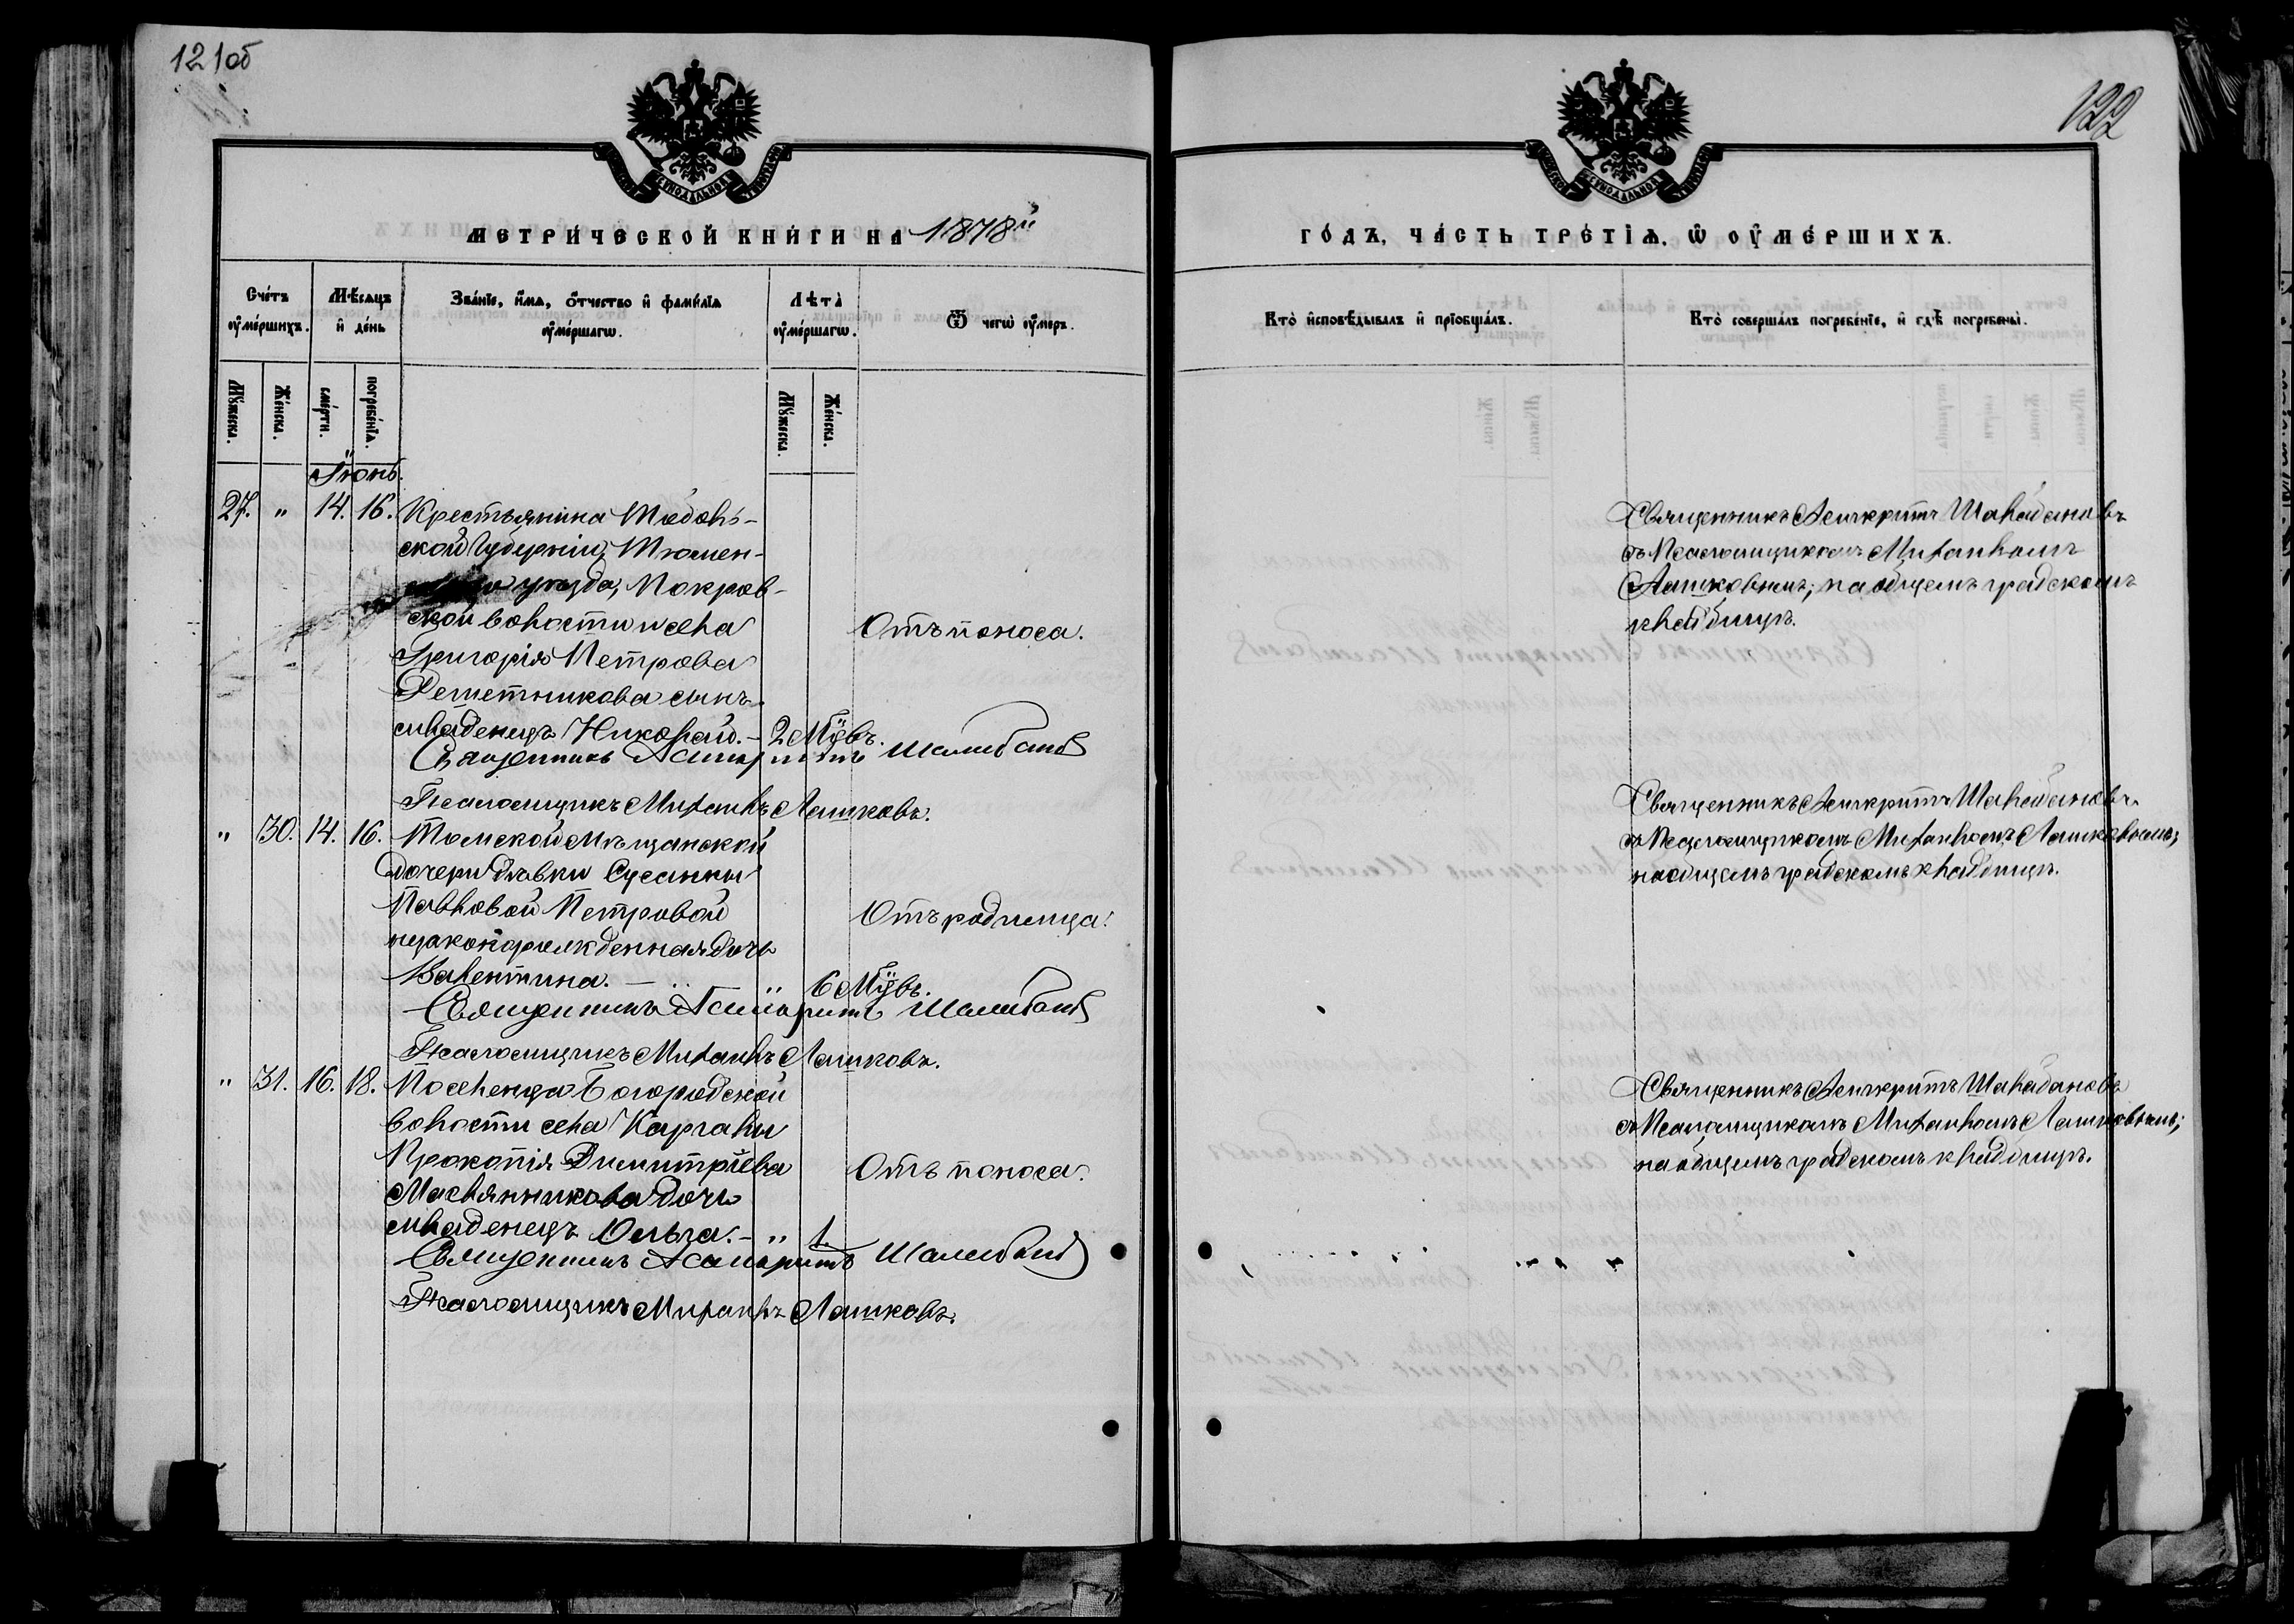 121об
122
СУНОДАЛЬНОЙ
СУНОДАЛЬНОЙ
МЕТРИЧЕСКОЙ КНИГИ НА 1878й
ГОДЪ, ЧАСТЬ ТРЕТІѦ, Ѿ ОУМЕРШИХЪ.
Счетъ оумершихъ.
Мѣсяцъ и день
Званіе, имя, отчество и фамилія оумершагω.
Лѣта оумершагω.
Ѿ чегω оумеръ.
Кто исповѣдывалъ и пріобщалъ.
Кто совершалъ погребеніе, и гдѣ погребены.
Мужеска.
Женска.
смерти.
погребенія.
Мужеска.
Женска.
Іюнь.
27. " 14. 16. Крестьянина Тоболь-
ской Губерніи, Тюмен-
уѣзда, Покров-
ской волости и села
Григорія Петрова
Решетникова сынъ
младенецъ Николай. - 2 Мѣ̈цвъ.
Отъ поноса.
Священникъ Асинкритъ Шалабановъ
Псаломщикъ Михаилъ Лашковъ.
Священникъ Асинкритъ Шалабановъ
съ Псаломщикомъ Михаиломъ
Лашковымъ; на общемъ градскомъ
кладбищѣ.
" 30. 14. 16. Томской мѣщанской
дочери дѣвки Сусанны
Павловой Петровой
незаконорожденная дочь
Валентина. - " 6 Мѣ̈цвъ.
Отъ родимца.
Священникъ Асинкритъ Шалабановъ
Псаломщикъ Михаилъ Лашковъ.
Священникъ Асинкритъ Шалабановъ
съ Псаломщикомъ Михаиломъ Лашковымъ;
на общемъ градскомъ кладбищѣ.
" 31. 16. 18. Поселенца Богородской
волости села Каргалы
Прокопія Димитріева
Маслянникова дочь
младенецъ Ольга. - " 1.
Отъ поноса.
Священникъ Асинкритъ Шалабановъ
Псаломщикъ Михаилъ Лашковъ.
Священникъ Асинкритъ Шалабановъ
съ Псаломщикомъ Михаиломъ Лашковымъ;
на общемъ градскомъ кладбищѣ.